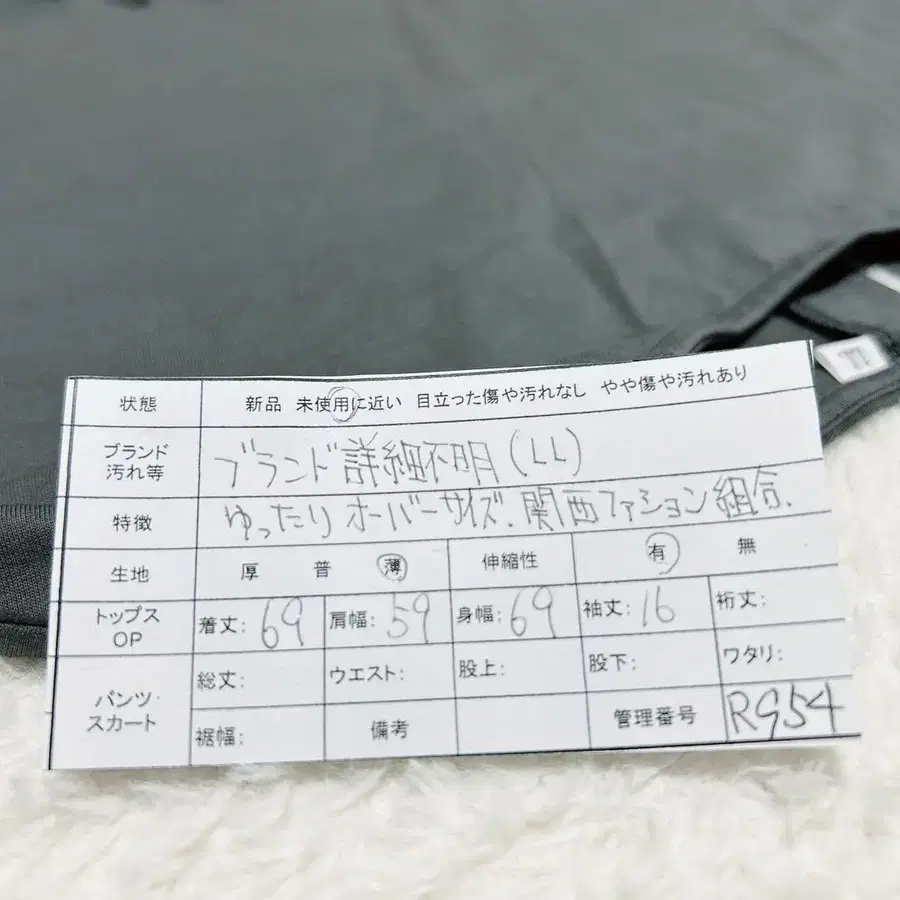 状態 新品 未使用に近い 目立った傷や汚れなし やや傷や汚れあり
ブランド
汚れ等
ブランド詳細不明(LL)
特徴 ゆったりオーバーサイズ.関西ファション組合.
生地 厚 普 薄 伸縮性 有 無
トップス
OP
着丈: 69 肩幅: 59 身幅: 69 袖丈: 16 裄丈:
パンツ
スカート
総丈: ウエスト: 股上: 股下: ワタリ:
裾幅: 備考 管理番号 R954